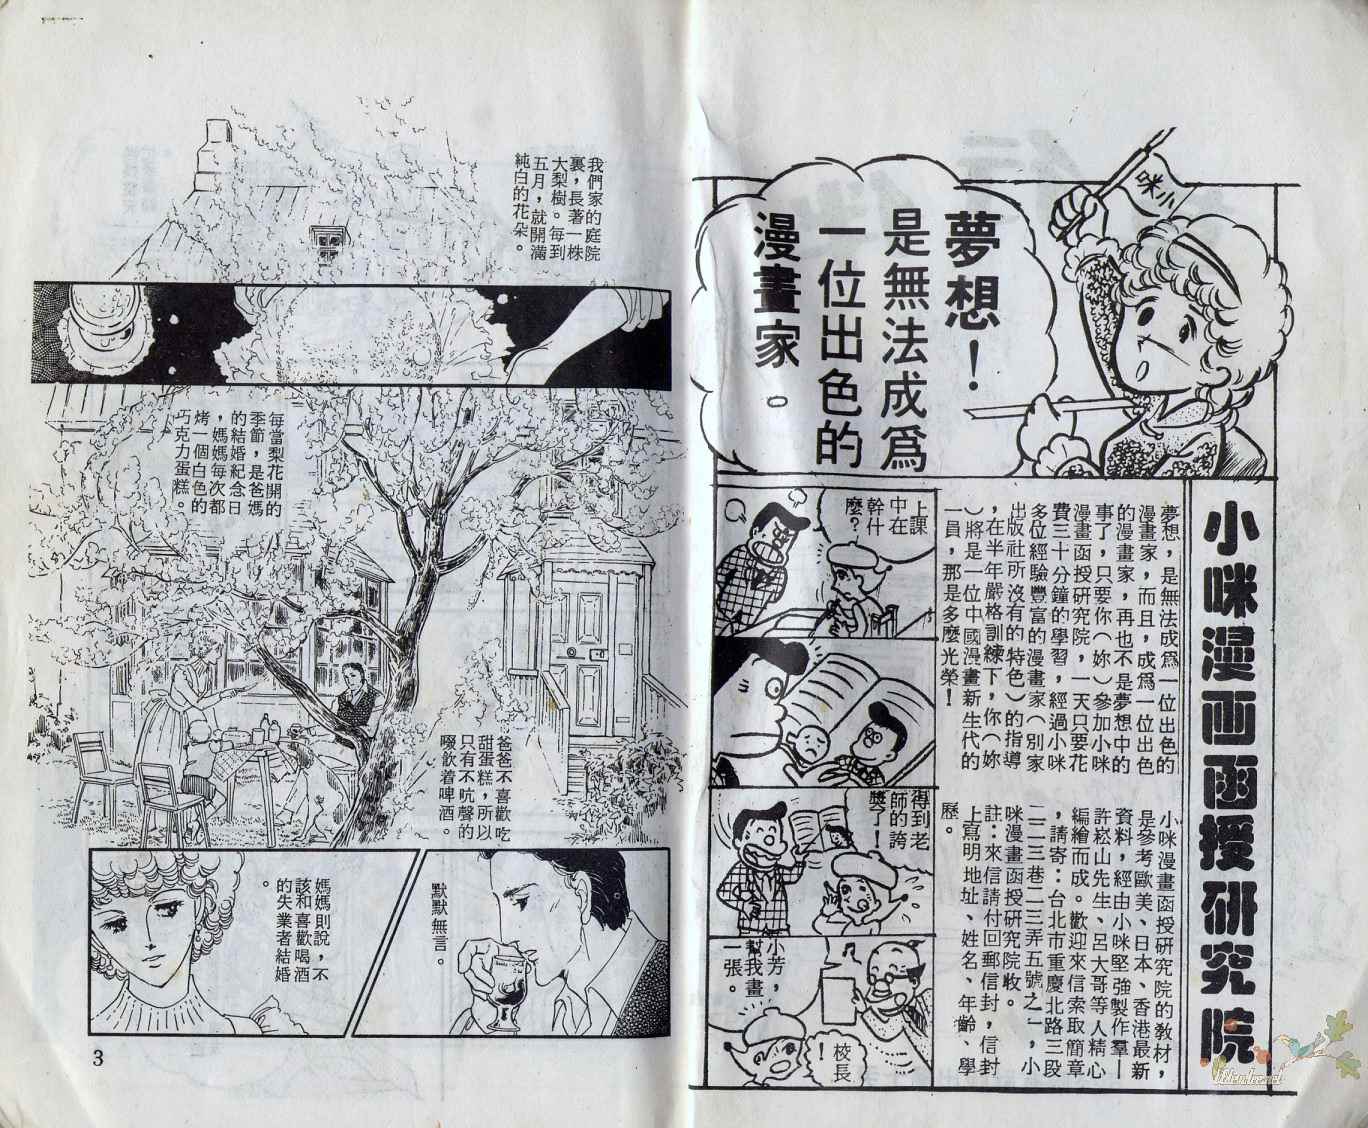 小咪
夢想！
是無法成爲
一位出色的
漫畫家。
小咪漫画函授研究院
夢想，是無法成爲一位出色的
漫畫家，而且，成爲一位出色
的漫畫家，再也不是夢想中的
事了，只要你（妳）參加小咪
漫畫函授研究院，一天只要花
費三十分鐘的學習，經過小咪
多位經驗豐富的漫畫家（別家
出版社所沒有的特色）的指導
，在半年嚴格訓練下，你（妳
）將是一位中國漫畫新生代的
一員，那是多麼光榮！
小咪漫畫函授研究院的教材，
是參考歐美、日本、香港最新
資料，經由小咪堅強製作羣—
許崧山先生、呂大哥等人精心
編繪而成。歡迎來信索取簡章
，請寄：台北市重慶北路三段
二二三巷二三弄五號之一，小
咪漫畫函授研究院收。
註：來信請付回郵信封，信封
上寫明地址、姓名、年齡、學
歷。
上課
中在
幹什
麼？
得到老
師的誇
獎了！
小芳，
幫我畫
一張。
校長
！
我們家的庭院
裏，長著一株
大梨樹。每到
五月，就開滿
純白的花朵。
每當梨花開的
季節，是爸媽
的結婚紀念日
，媽媽每次都
烤一個白色的
巧克力蛋糕。
爸爸不喜歡吃
甜蛋糕，所以
只有不吭聲的
啜飲着啤酒。
默默無言。
媽媽則說，不
該和喜歡喝酒
的失業者結婚
。
3